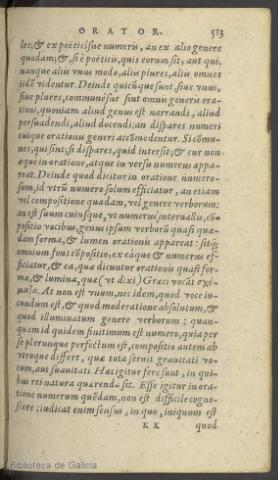 ORATOR. 513
les; & ex poëticisne numeris, an ex alio genere
quodam; &, si è poëticis, quis eorum sit, aut qui,
nanque aliis vnus modo, aliis plures, aliis omnes
iidē videntur. Deinde quicūque sunt, siue vnus,
siue plures, communésne sint omnis generis ora-
tioni, quoniam aliud genus est narrandi, aliud
persuadendi, aliud docendi: an dispares numeri
cuique orationis generi accōmodentur. Si cōmu-
nes, qui sint; si dispares, quid intersit; & cur non
æque in oratione, atque in versu numerus appa-
reat. Deinde quod dicitur in oratione numero-
sum, id vtrū numero solum efficiatur, an etiam
vel compositione quadam, vel genere verborum:
an est suum cuiusque, vt numerus interuallu, cō-
positio vocibus, genus ipsum verborū quasi quæ-
dam forma, & lumen orationis appareat: sitq́;
omnium fons cōpositio, ex eáque & numerus ef-
ficiatur, & ea, quæ dicuntur orationis quasi for-
mæ, & lumina, quæ (vt dixi) Græci vocāt σχή-
ματα. At non est vnum, nec idem, quod voce iu-
cundum est, & quod moderatione absolutum, &
quod illuminatum genere verborum: quan-
quam id quidem finitimum est numero, quia per
se plerunque perfectum est, compositio autem ab
vtroque differt, quæ tota seruit grauitati vo-
cum, aut suauitati. Hæc igitur fere sunt, in qui-
bus rei natura quærenda sit. Esse igitur in ora-
tione numerum quēdam, non est difficile cogno-
scere: iudicat enim sensus, in quo, iniquum est
KK quod
Biblioteca de Galicia